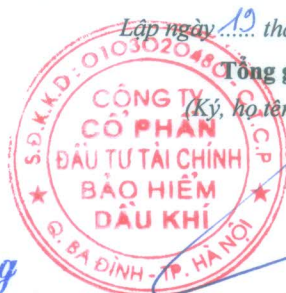 Lập ngày 19 th
Tổng g
(Ký, họ tên
S.Đ.K.K.D: 0103020480 - C.T.C.P
CÔNG TY
CỔ PHẦN
ĐẦU TƯ TÀI CHÍNH
BẢO HIỂM
DẦU KHÍ
Q. BA ĐÌNH - TP. HÀ NỘI